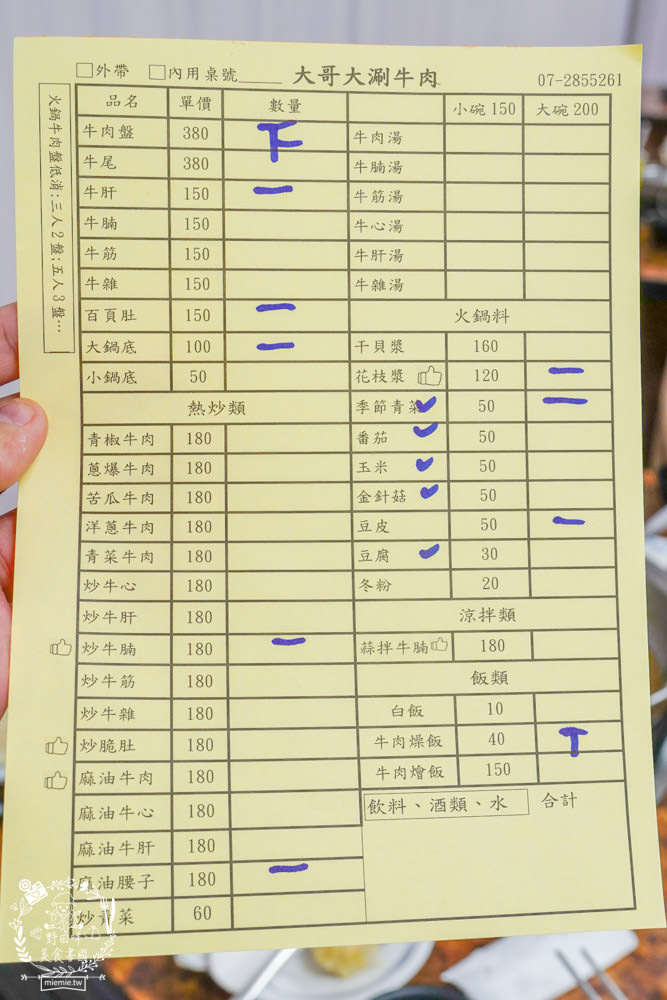 □外帶 □內用桌號_____ 大哥大涮牛肉 07-2855261
火鍋牛肉盤低消:三人2盤;五人3盤…
品名 單價 數量
牛肉盤 380 下
牛尾 380
牛肝 150 一
牛腩 150
牛筋 150
牛雜 150
百頁肚 150 一
大鍋底 100 一
小鍋底 50
熱炒類
青椒牛肉 180
蔥爆牛肉 180
苦瓜牛肉 180
洋蔥牛肉 180
青菜牛肉 180
炒牛心 180
炒牛肝 180
炒牛腩 180 一
炒牛筋 180
炒牛雜 180
炒脆肚 180
麻油牛肉 180
麻油牛心 180
麻油牛肝 180
麻油腰子 180 一
炒青菜 60
小碗150 大碗200
牛肉湯
牛腩湯
牛筋湯
牛心湯
牛肝湯
牛雜湯
火鍋料
干貝漿 160
花枝漿 120 一
季節青菜 ✓ 50 一
番茄 ✓ 50
玉米 ✓ 50
金針菇 ✓ 50
豆皮 50 一
豆腐 ✓ 30
冬粉 20
涼拌類
蒜拌牛腩 180
飯類
白飯 10
牛肉燥飯 40 T
牛肉燴飯 150
飲料、酒類、水 合計
野田咩
美食書園
miemie.tw